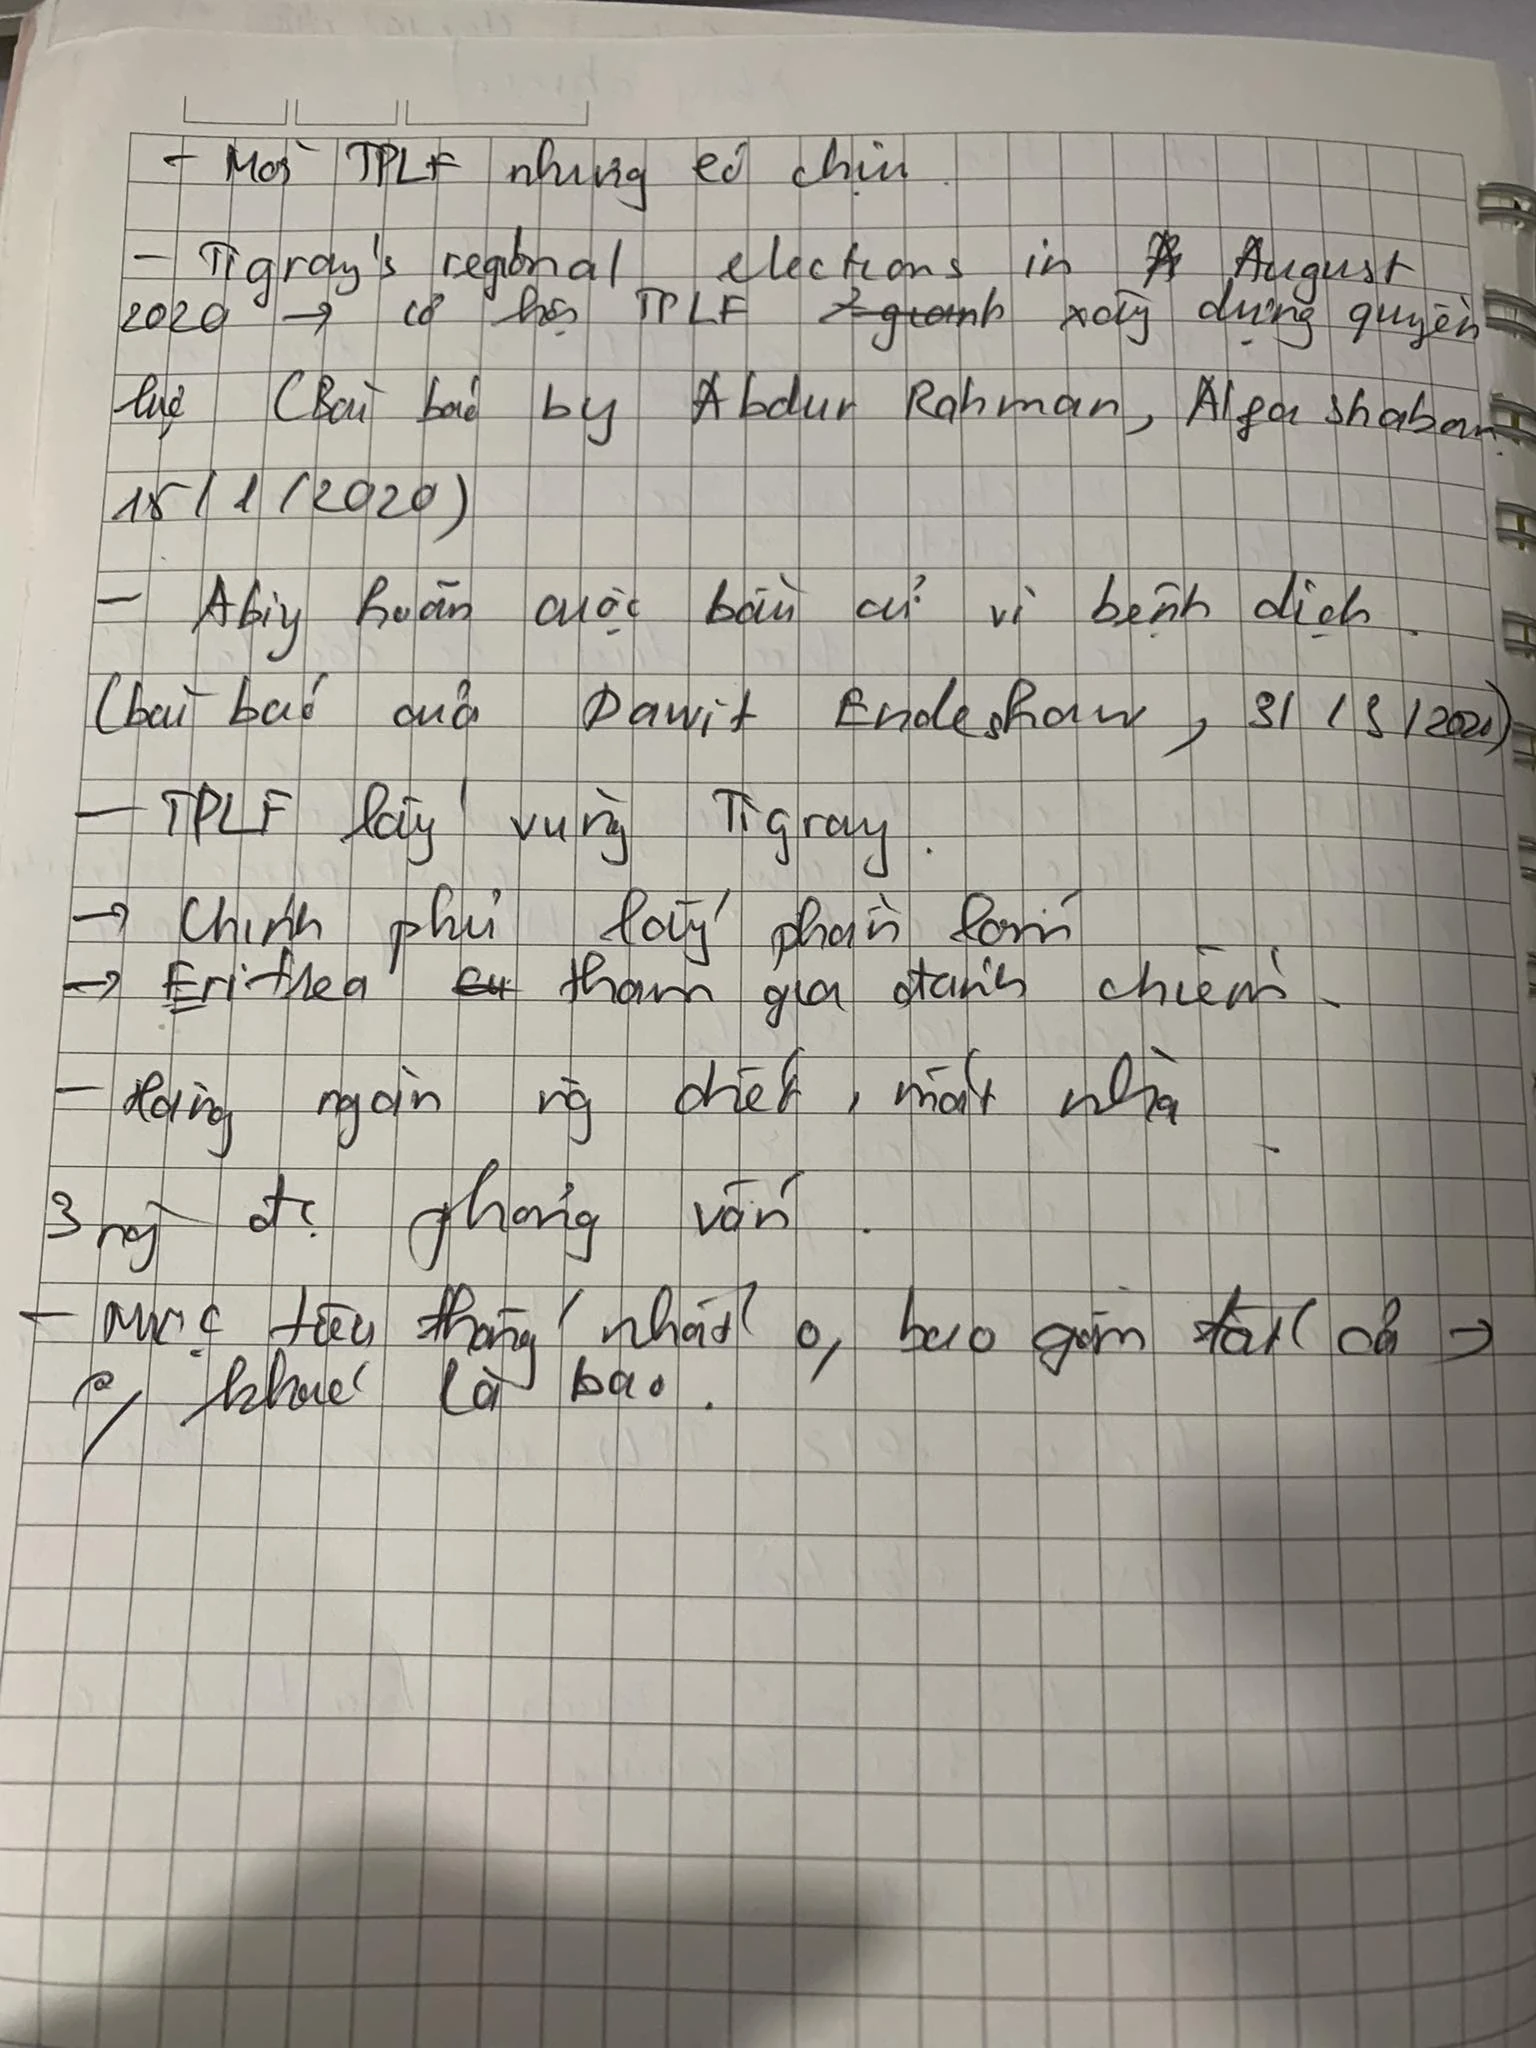 - Mời TPLF nhưng eó chịu.
- Tigray's regional elections in August
2020 → cơ hội TPLF xây dựng quyền
lực (Bài báo by Abdur Rahman, Alfa Shaban
15/1/2020)
- Abiy hoãn cuộc bầu cử vì bệnh dịch.
(bài báo của Dawit Endeshaw, 31/3/2020)
- TPLF lấy vùng Tigray.
→ Chính phủ lấy phần lớn
→ Erithea tham gia đánh chiếm.
- Hàng ngàn ng chết, mất nhà.
3 ng đc phỏng vấn.
- Mục tiêu thống nhất o, bao gồm tất cả →
khác là bao.